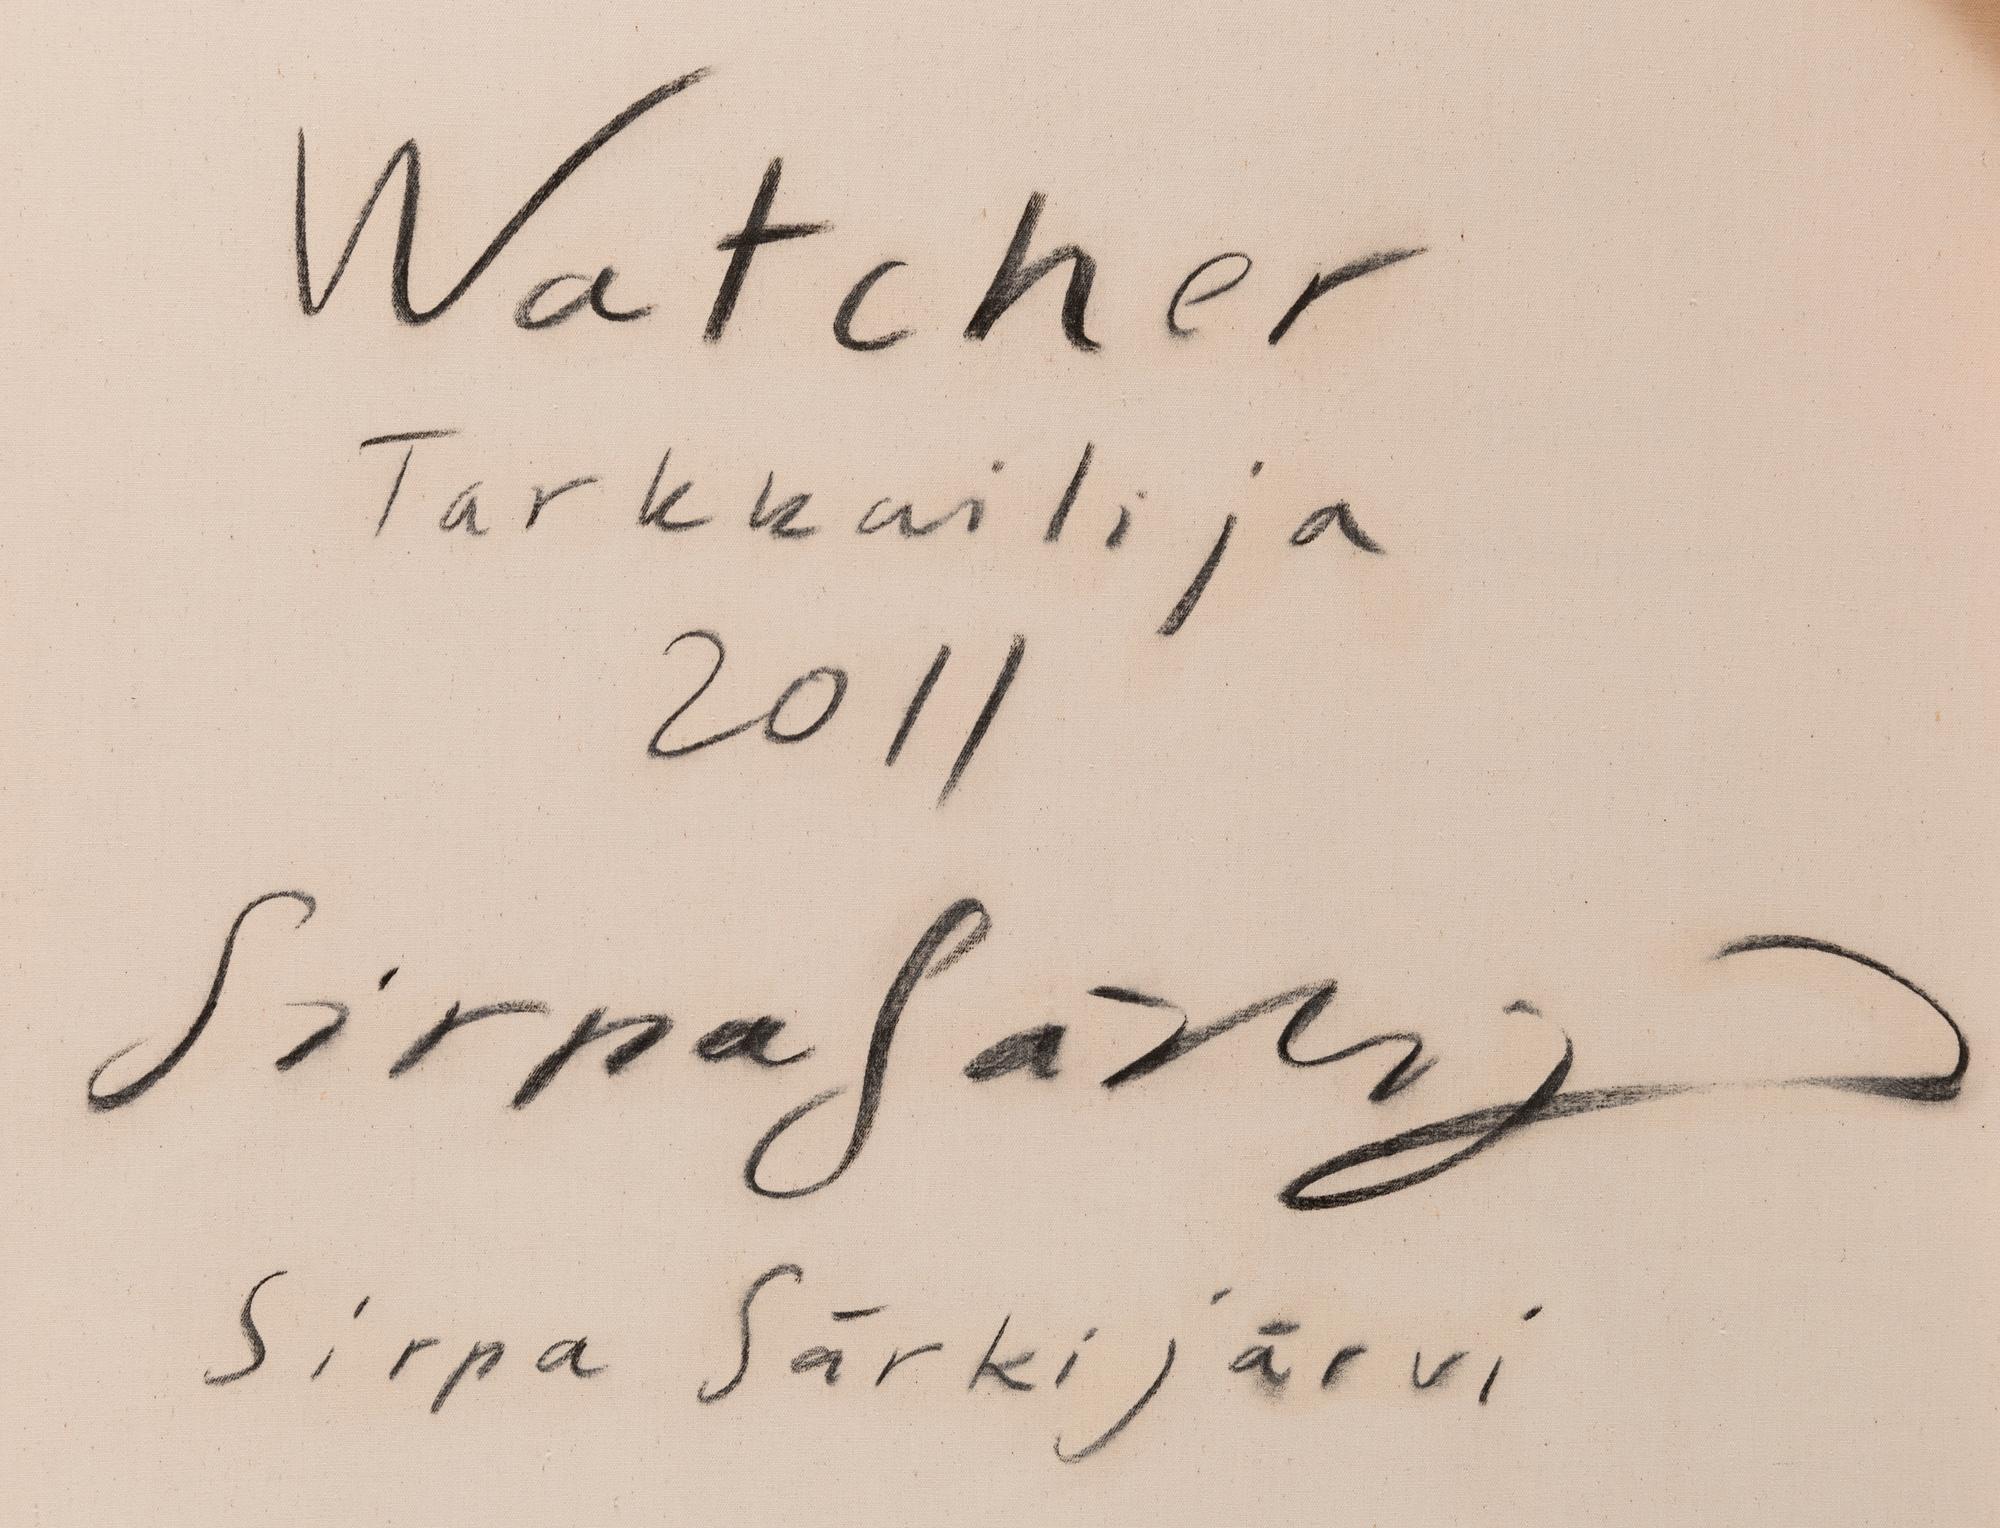 Watcher
Tarkkailija
2011
Sirpa Särkij
Sirpa Särkijärvi